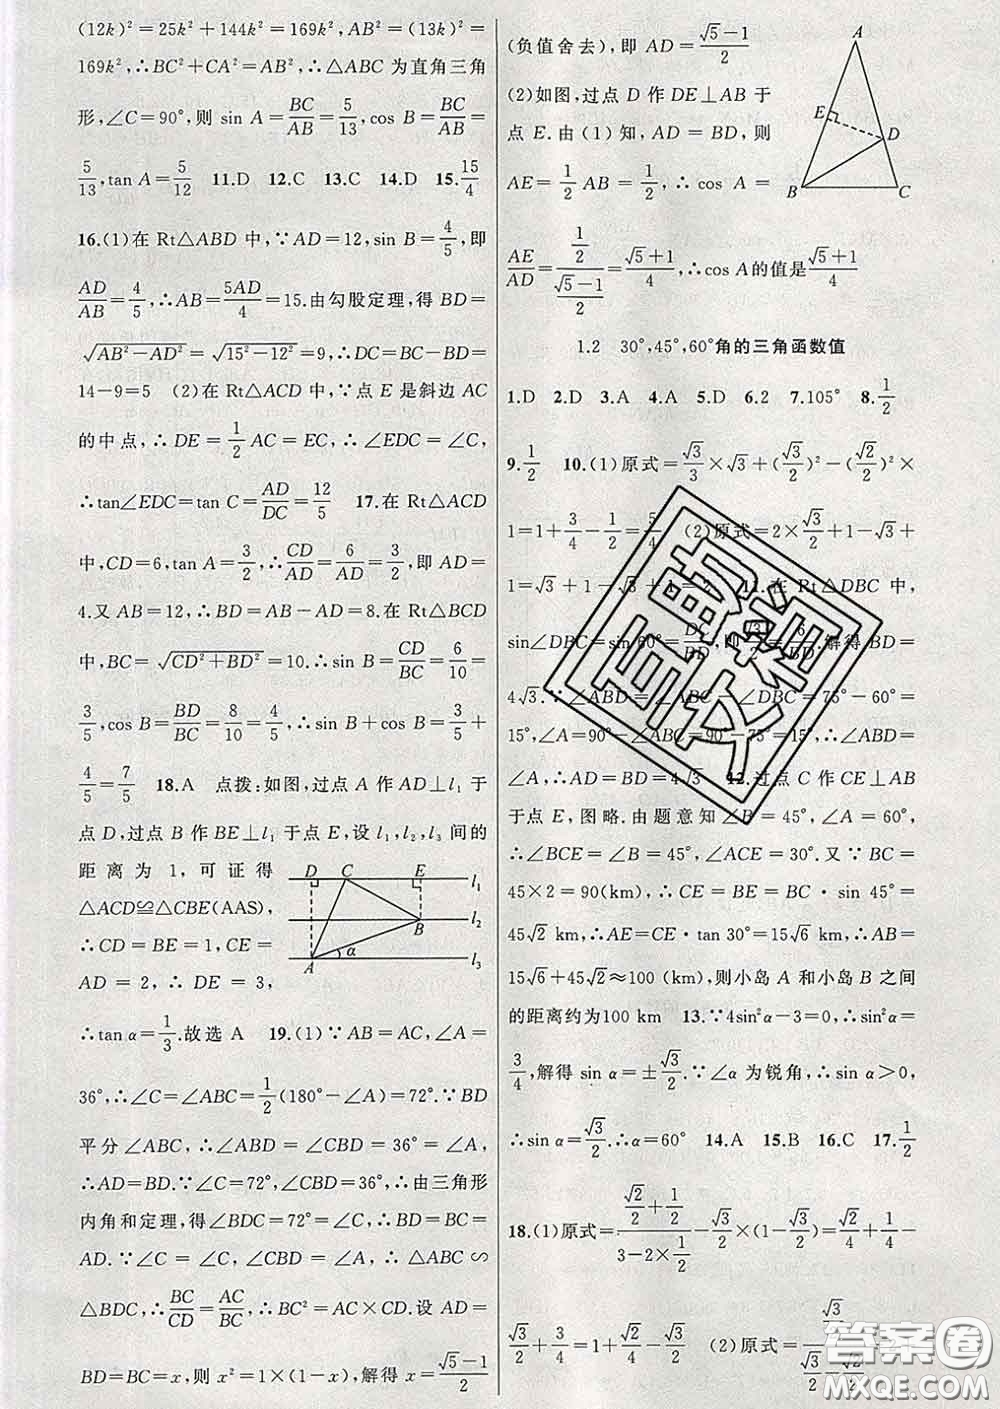 (12k)²=25k²+144k²=169k²,AB²=(13k)²=
169k²,∴BC²+CA²=AB²,∴△ABC 为直角三角
形,∠C=90°,则 sin A=BC/AB=5/13,cos B=BC/AB=
5/13,tan A=5/12 11.D 12.C 13.C 14.D 15.15/4
16.(1)在 Rt△ABD 中,∵AD=12,sin B=4/5,即
AD/AB=4/5,∴AB=5AD/4=15.由勾股定理,得 BD=
√(AB²-AD²)=√(15²-12²)=9,∴DC=BC-BD=
14-9=5 (2)在 Rt△ACD 中,∵点 E 是斜边 AC
的中点,∴DE=1/2AC=EC,∴∠EDC=∠C,
∴tan∠EDC=tan C=AD/DC=12/5 17.在 Rt△ACD
中,CD=6,tan A=3/2,∴CD/AD=6/AD=3/2,即 AD=
4.又 AB=12,∴BD=AB-AD=8.在 Rt△BCD
中,BC=√(CD²+BD²)=10.∴sin B=CD/BC=6/10=
3/5,cos B=BD/BC=8/10=4/5,∴sin B+cos B=3/5+
4/5=7/5 18.A 点拨:如图,过点 A 作 AD⊥l₁ 于
点 D,过点 B 作 BE⊥l₁ 于点 E,设 l₁,l₂,l₃ 间的
距离为 1,可证得
△ACD≌△CBE(AAS),
∴CD=BE=1,CE=
AD=2,∴DE=3,
D C E l₁
B l₂
A α l₃
∴tan α=1/3.故选 A 19.(1)∵AB=AC,∠A=
36°,∴∠C=∠ABC=1/2(180°-∠A)=72°.∵BD
平分∠ABC,∴∠ABD=∠CBD=36°=∠A,
∴AD=BD.∵∠C=72°,∠CBD=36°,∴由三角形
内角和定理,得∠BDC=72°=∠C,∴BD=BC=
AD.∵∠C=∠C,∠CBD=∠A,∴△ABC∽
△BDC,∴BC/CD=AC/BC,∴BC²=AC×CD.设 AD=
BD=BC=x,则 x²=1×(1-x),解得 x=(√5-1)/2
(负值舍去),即 AD=(√5-1)/2
(2)如图,过点 D 作 DE⊥AB 于
点 E.由(1)知,AD=BD,则
AE=1/2AB=1/2,∴cos A=
A
E
D
B C
AE/AD=(1/2)/((√5-1)/2)=(√5+1)/4,∴cos A的值是(√5+1)/4
1.2 30°,45°,60°角的三角函数值
1.D 2.D 3.A 4.A 5.D 6.2 7.105° 8.1/2
9.1/2 10.(1)原式=√3/3×√3+(√3/2)²-(√2/2)²×
1=1+3/4-1/2=5/4 (2)原式=2×√3/2+1-√3+
1=√3+1-√3+1=2 11.在 Rt△DBC 中,
sin∠DBC=sin 60°=DC/BD,即√3/2=6/BD.解得 BD=
4√3.∵∠ABD=∠ABC-∠DBC=75°-60°=
15°,∠A=90°-∠ABC=90°-75°=15°,∴∠ABD=
∠A,∴AD=BD=4√3 12.过点 C 作 CE⊥AB
于点 E,图略.由题意知∠B=45°,∠A=60°,
∴∠BCE=∠B=45°,∠ACE=30°.又∵BC=
45×2=90(km),∴CE=BE=BC·sin 45°=
45√2 km,∴AE=CE·tan 30°=15√6 km,∴AB=
15√6+45√2≈100 (km),则小岛 A 和小岛 B 之间
的距离约为100 km 13.∵4sin²α-3=0,∴sin²α=
3/4,解得 sin α=±√3/2.∵∠α 为锐角,∴sin α>0,
∴sin α=√3/2.∴α=60° 14.A 15.B 16.C 17.1/2
18.(1)原式=(√2/2+1/2)/(3-2×1/2)-√3/2×(1-√3/2)=√2/4+1/4-
√3/2+3/4=1+√2/4-√3/2 (2)原式=(√3/2)/(√3/2-√2/2)
百助文档
答案圈
MXQE.COM